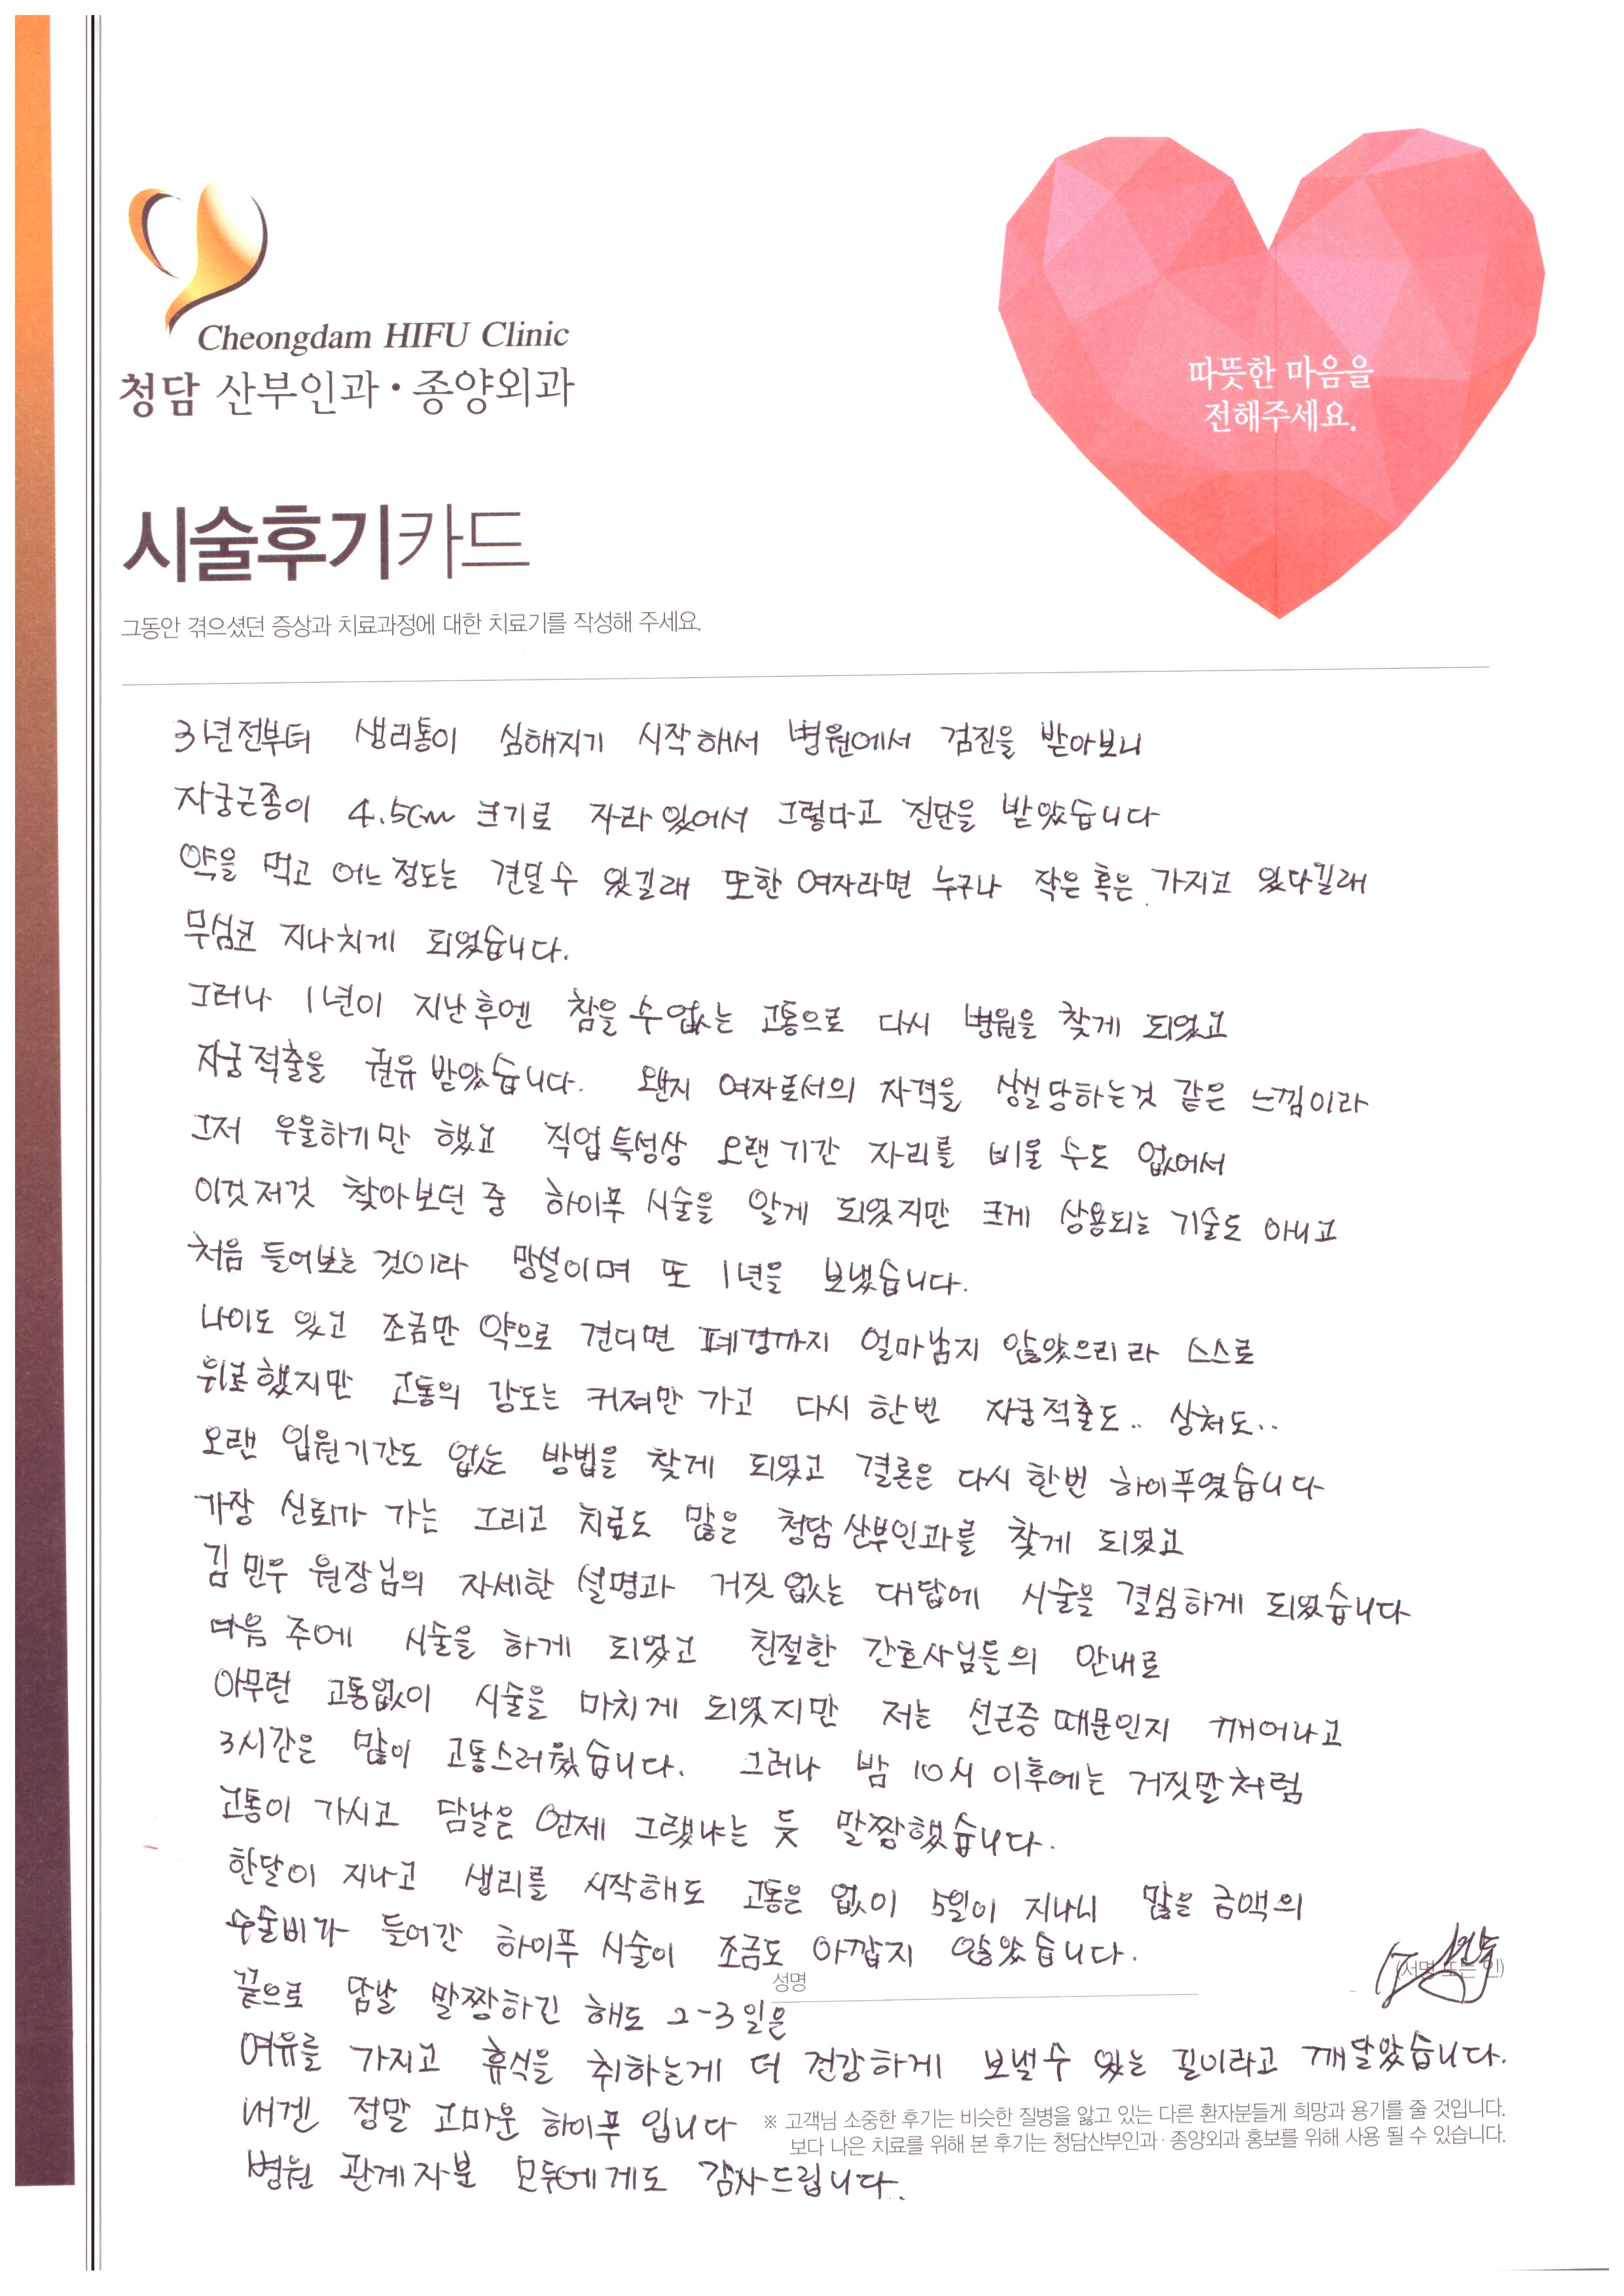 Cheongdam HIFU Clinic
청담 산부인과·종양외과
따뜻한 마음을
전해주세요.
시술후기카드
그동안 겪으셨던 증상과 치료과정에 대한 치료기를 작성해 주세요.
3년전부터 생리통이 심해지기 시작해서 병원에서 검진을 받아보니
자궁근종이 4.5cm 크기로 자라 있어서 그렇다고 진단을 받았습니다
약을 먹고 어느정도는 견딜수 있길래 또한 여자라면 누구나 작은 혹은 가지고 있다길래
무심코 지나치게 되었습니다.
그러나 1년이 지난후엔 참을 수 없는 고통으로 다시 병원을 찾게 되었고
자궁적출을 권유 받았습니다. 왠지 여자로서의 자격을 상실당하는것 같은 느낌이라
그저 우울하기만 했고 직업특성상 오랜기간 자리를 비울 수도 없어서
이것저것 찾아보던 중 하이푸 시술을 알게 되었지만 크게 상용되는 기술도 아니고
처음 들어보는 것이라 망설이며 또 1년을 보냈습니다.
나이도 있고 조금만 약으로 견디면 폐경까지 얼마남지 않았으리라 스스로
위로했지만 고통의 강도는 커져만 가고 다시 한번 자궁적출도.. 상처도..
오랜 입원기간도 없는 방법을 찾게 되었고 결론은 다시 한번 하이푸였습니다
가장 신뢰가 가는 그리고 치료도 많은 청담산부인과를 찾게 되었고
김민우 원장님의 자세한 설명과 거짓 없는 대답에 시술을 결심하게 되었습니다
다음 주에 시술을 하게 되었고 친절한 간호사님들의 안내로
아무런 고통없이 시술을 마치게 되었지만 저는 선근증 때문인지 깨어나고
3시간은 많이 고통스러웠습니다. 그러나 밤 10시 이후에는 거짓말처럼
고통이 가시고 담날은 언제 그랬냐는 듯 말짱했습니다.
한달이 지나고 생리를 시작해도 고통은 없이 5일이 지나니 많은 금액의
수술비가 들어간 하이푸 시술이 조금도 아깝지 않았습니다.
성명
(서명 또는 인)
끝으로 담날 말짱하긴 해도 2-3일은
여유를 가지고 휴식을 취하는게 더 건강하게 보낼수 있는 길이라고 깨달았습니다.
내겐 정말 고마운 하이푸 입니다
※ 고객님 소중한 후기는 비슷한 질병을 앓고 있는 다른 환자분들게 희망과 용기를 줄 것입니다.
보다 나은 치료를 위해 본 후기는 청담산부인과·종양외과 홍보를 위해 사용 될 수 있습니다.
병원 관계자분 모두에게도 감사드립니다.